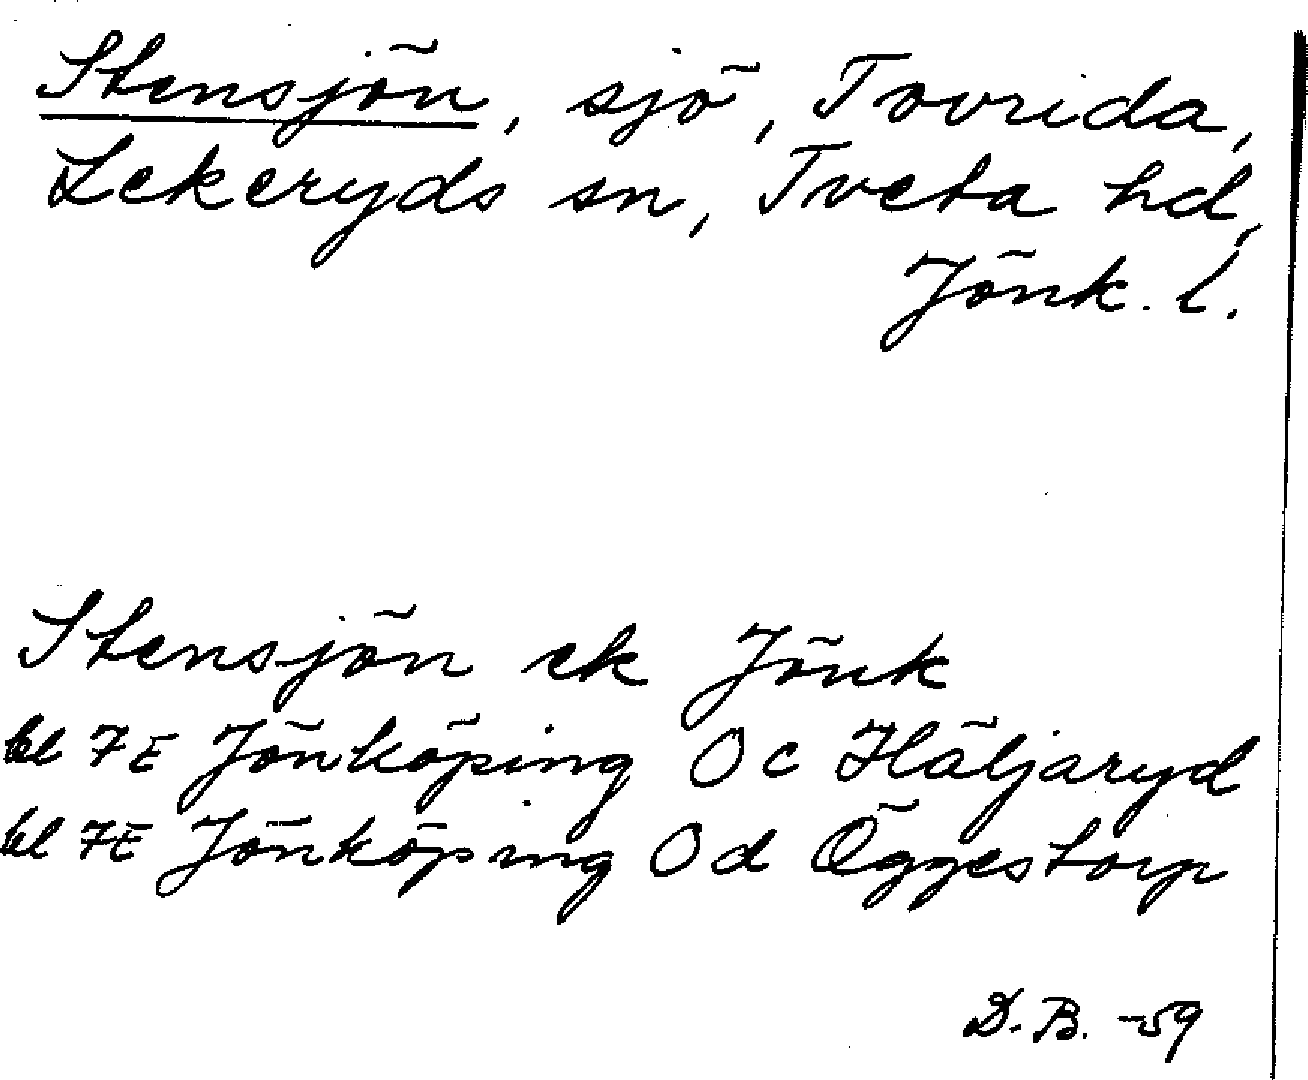 Stensjön, sjö, Tovrida,
Lekeryds sn, Tveta hd,
Jönk. l.
Stensjön ek Jönk
bl 7E Jönköping Oc Häljaryd
bl 7E Jönköping Od Öggestorp
D.B. -59